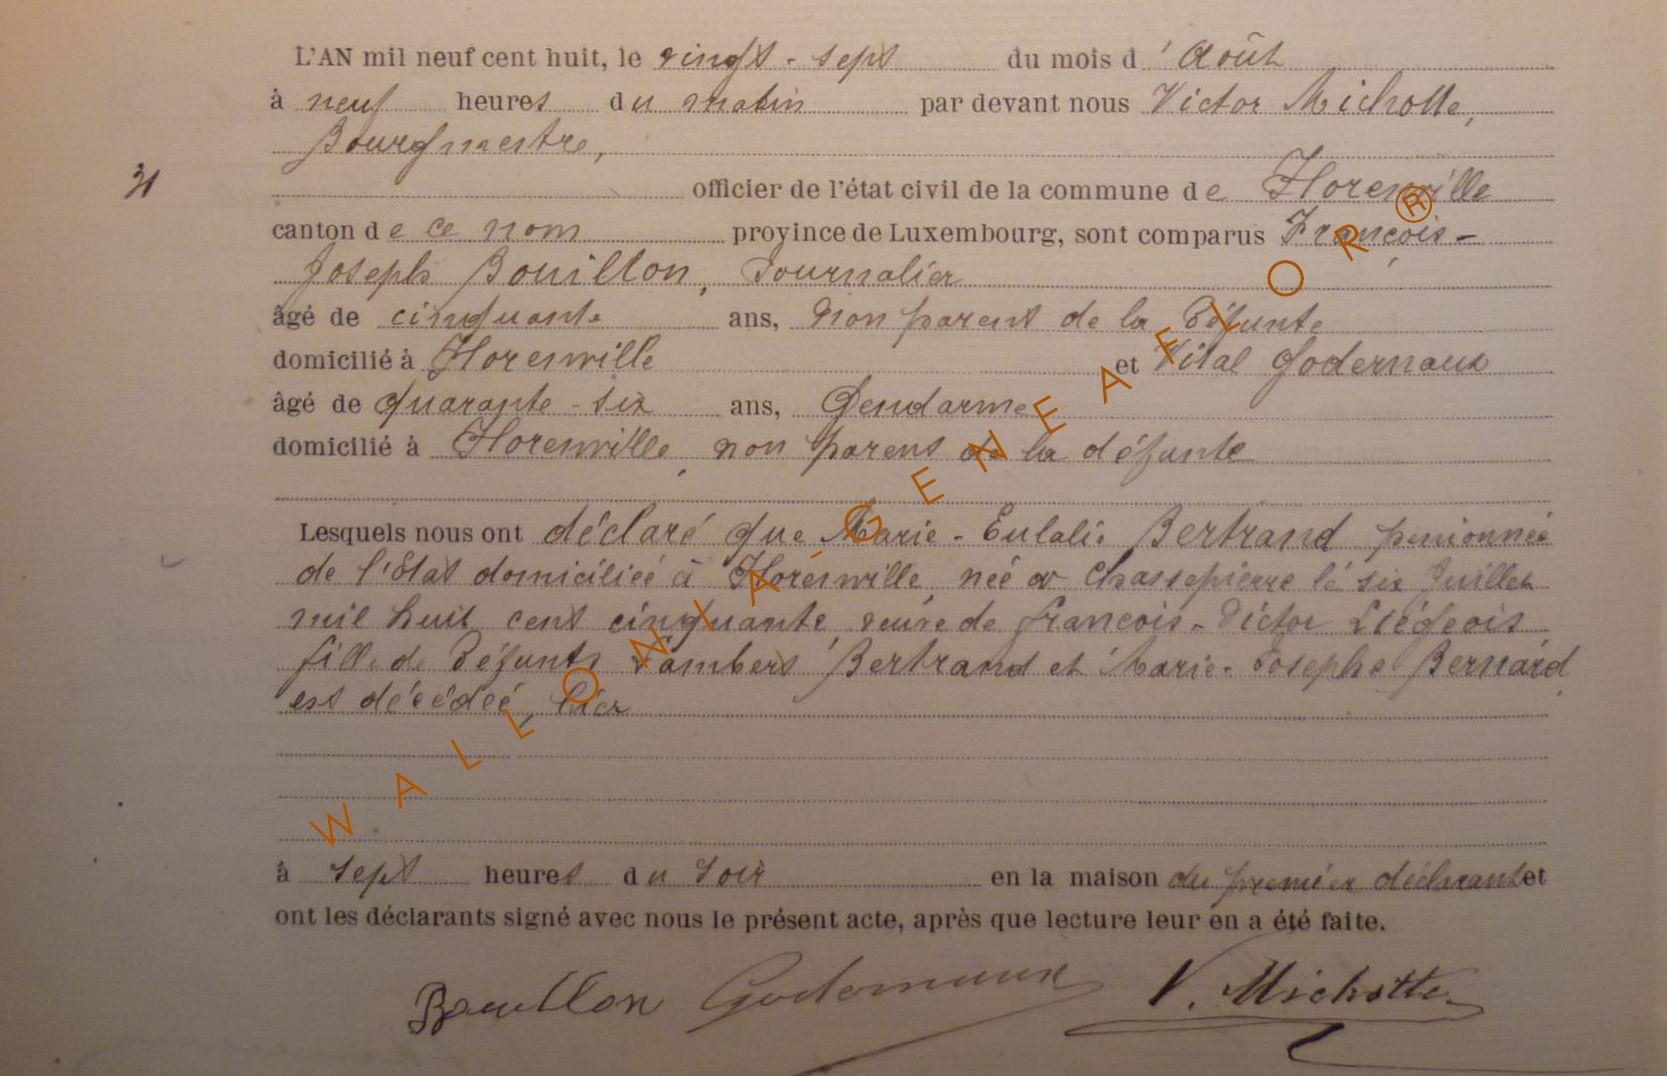 L'AN mil neuf cent huit, le vingt-sept du mois d'Août
à neuf heures du matin par devant nous Victor Michotte,
Bourgmestre,
31
officier de l'état civil de la commune de Florenville
canton de ce nom province de Luxembourg, sont comparus François-
Joseph Bouillon, Journalier
âgé de cinquante ans, non parent de la Défunte
domicilié à Florenville et Vital Godernaux
âgé de quarante-six ans, Gendarme
domicilié à Florenville, non parent de la défunte
Lesquels nous ont déclaré que Marie-Eulalie Bertrand pensionnée
de l'état domiciliée à Florenville, née à Chassepierre le six Juillet
mil huit cent cinquante, veuve de François-Victor Liégeois
fille de Défunts Lambert Bertrand et Marie-Josephe Bernard,
est décédée, hier
à sept heures du soir en la maison du premier déclarant et
ont les déclarants signé avec nous le présent acte, après que lecture leur en a été faite.
Bouillon Godernaux V. Michotte
WALLONIA-GENEAFLOR®